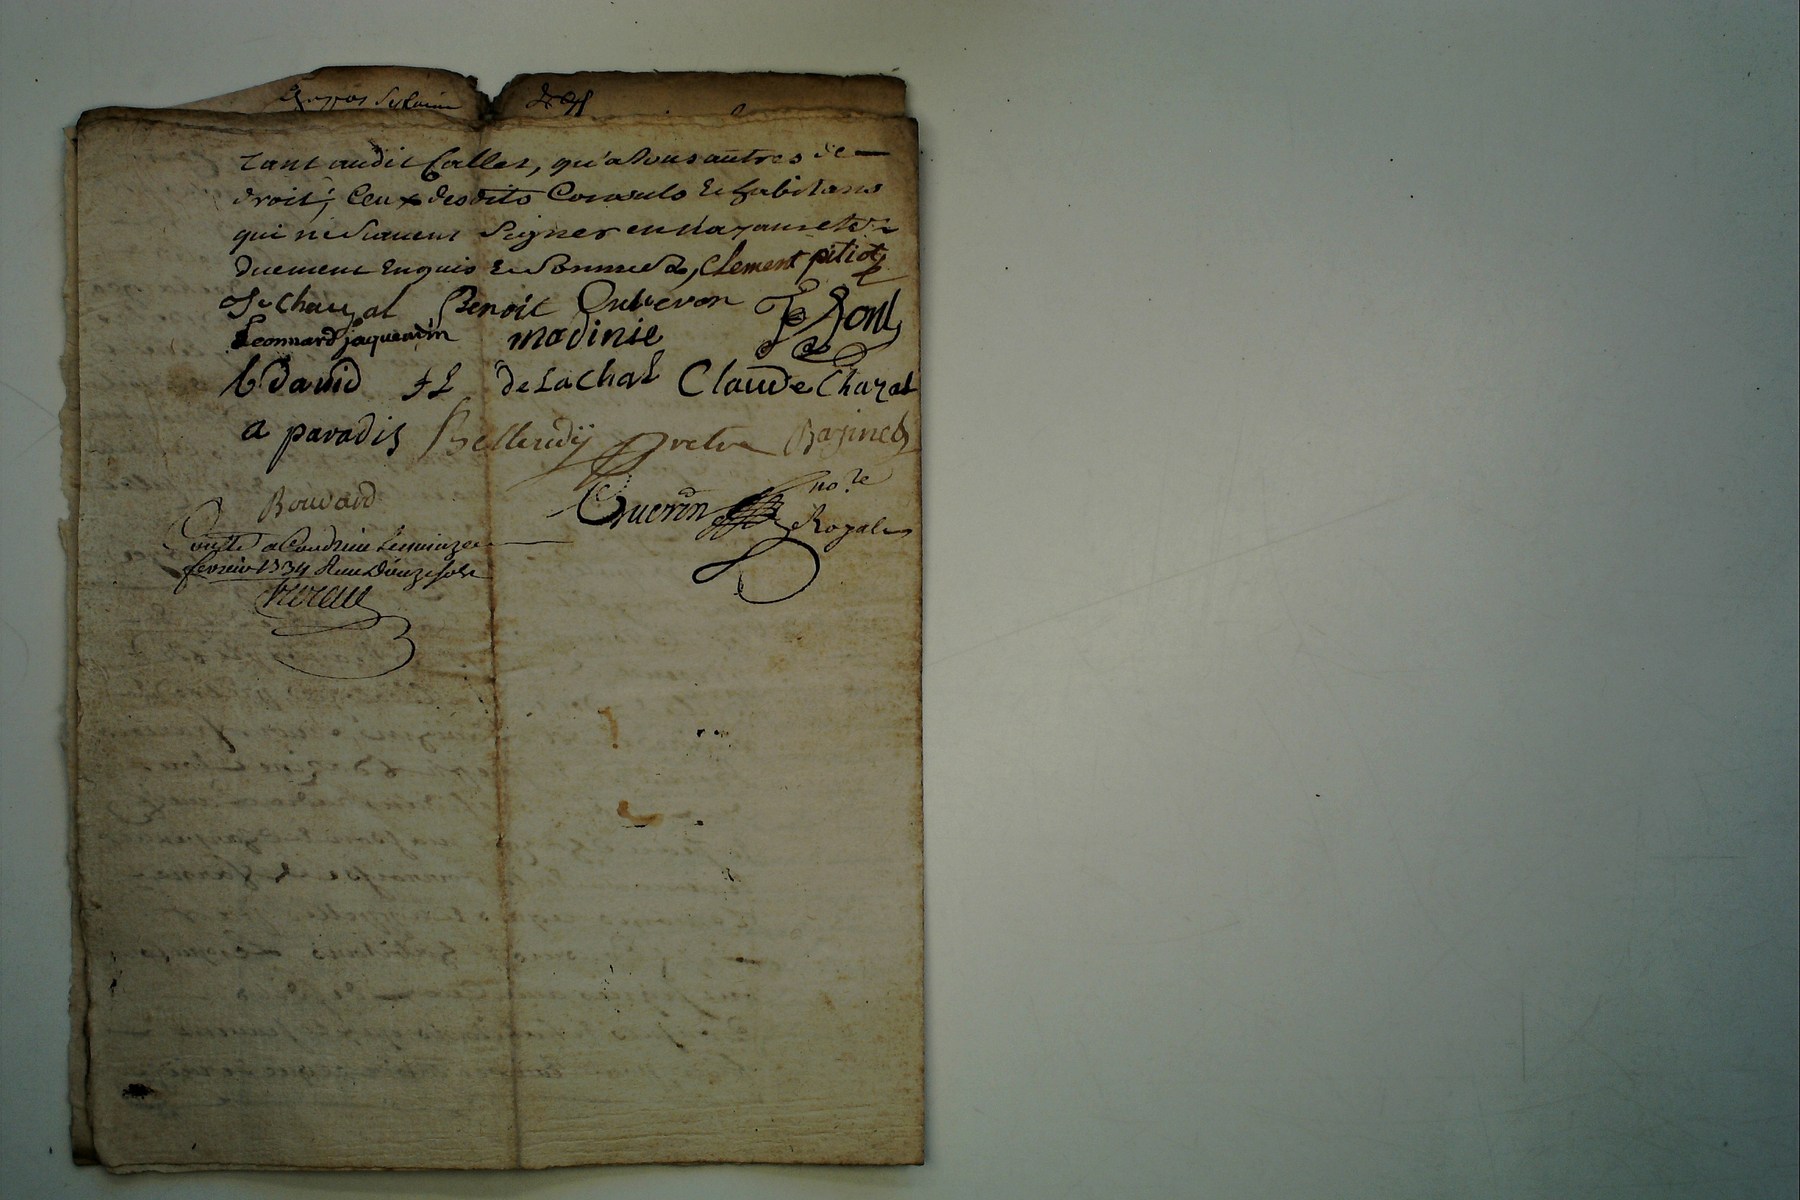 tant audit Collet, qu'a tous autres de
droit; Ceux desdits Consuls et habitans
qui ne scavent signer en n'ayant ete
duement Enquis et sommés, Clement pitiot
Chazal Benoit Ouberon JP Font
Leonnard jaquemin madinie
b David fL de Lachal Claude Chazal
a paradis Belleudÿ Bajinet
Bouvard
Guerin no.re Royal
a Coudrieu le quinze
fevrier 1734 Reçu Douze sols